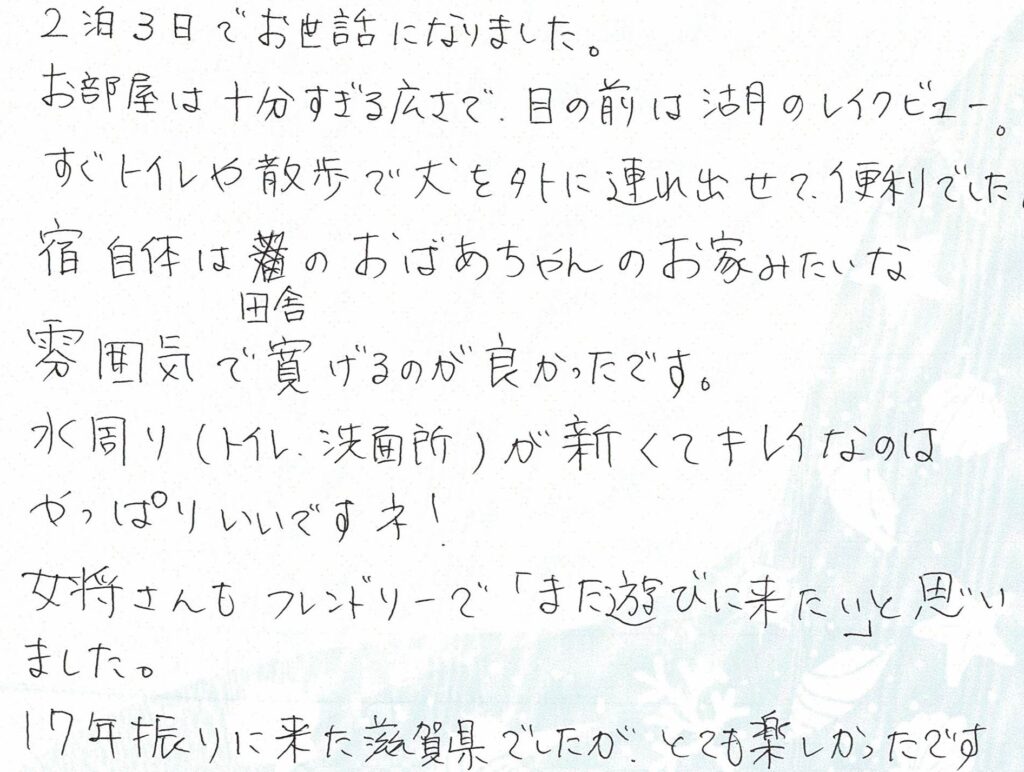 2泊3日でお世話になりました。
お部屋は十分すぎる広さで、目の前は湖のレイクビュー。
すぐトイレや散歩で犬を外に連れ出せて、便利でした
宿自体はのおばあちゃんのお家みたいな
田舎
雰囲気で寛げるのが良かったです。
水周り(トイレ、洗面所)が新くてキレイなのは
やっぱりいいですネ!
女将さんもフレンドリーで「また遊びに来たい」と思い
ました。
17年振りに来た滋賀県でしたが、とても楽しかったです